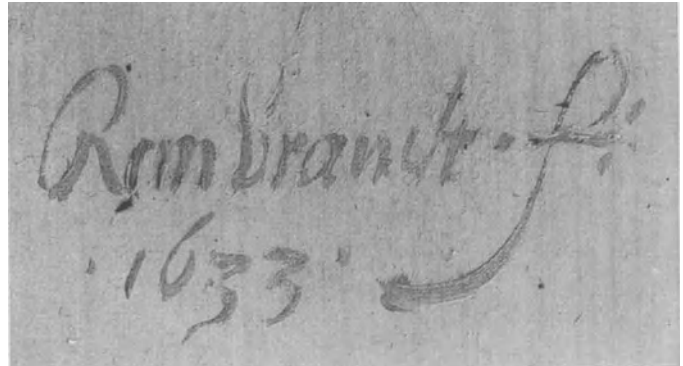 Rembrandt · f:
· 1633 ·